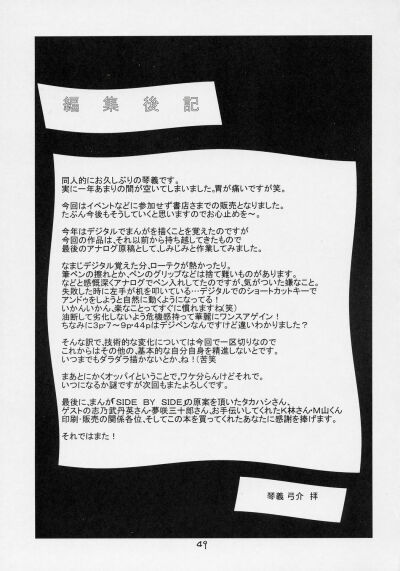 編集後記
同人的にお久しぶりの琴義です。
実に一年あまりの間が空いてしまいました。胃が痛いですが笑。
今回はイベントなどに参加せず書店さまでの販売となりました。
たぶん今後もそうしていくと思いますのでお心止めを〜。
今年はデジタルでまんがを描くことを覚えたのですが
今回の作品は、それ以前から持ち越してきたもので
最後のアナログ原稿として、しみじみと作業してみました。
なまじデジタル覚えた分、ローテクが熱かったり。
筆ペンの擦れとか、ペンのグリップなどは捨て難いものがあります。
などと感慨深くアナログでペン入れしてたのですが、気がついた嫌なこと。
失敗した時に左手が机を叩いている…デジタルでのショートカットキーで
アンドゥをしようと自然に動くようになってる！
いかんいかん、楽なことってすぐに慣れますね（笑）
油断して劣化しないよう危機感持って華麗にワンスアゲイン！
ちなみに3p・7〜9p・44pはデジペンなんですけど違いわかりました？
そんな訳で、技術的な変化については今回で一区切りなので
これからはその他の、基本的な自分自身を精進しないとです。
いつまでもダラダラ描かないとか、ね！（苦笑
まあとにかくオッパイということで。ワケ分らんけどそれで。
いつになるか謎ですが次回もまたよろしくです。
最後に、まんが「SIDE BY SIDE」の原案を頂いたタカハシさん、
ゲストの志乃武丹英さん・夢咲三十郎さん、お手伝いしてくれたK林さん・M山くん
印刷・販売の関係各位、そしてこの本を買ってくれたあなたに感謝を捧げます。
それではまた！
琴義 弓介 拝
49